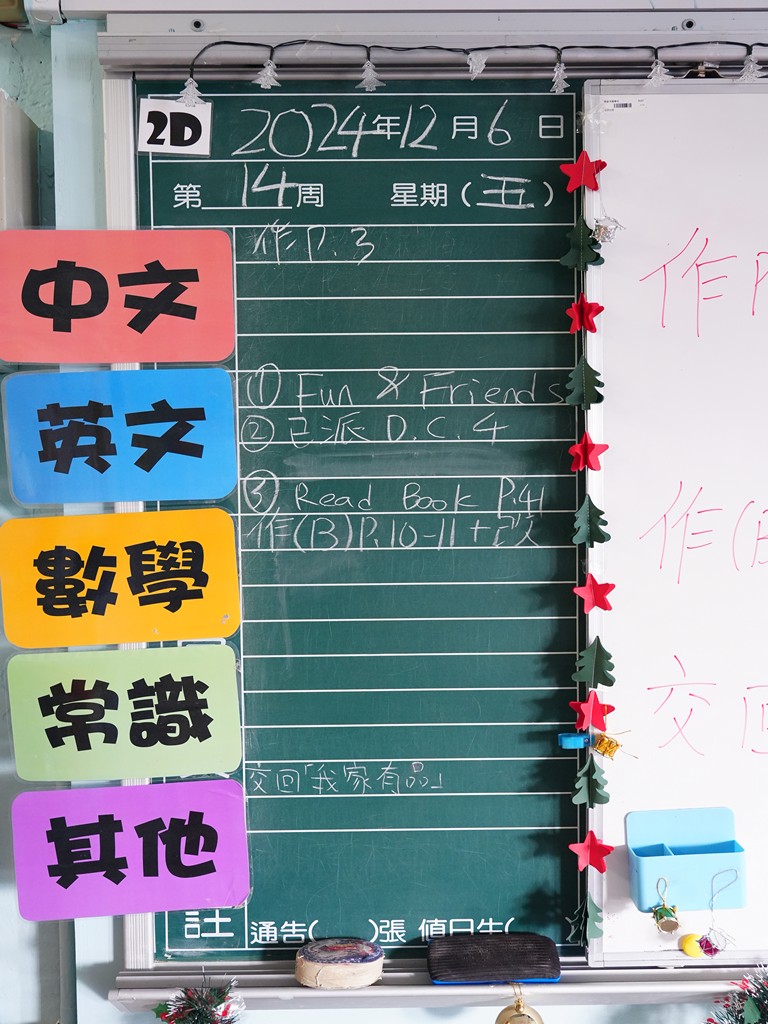 2D
2024年12月6日
第 14 周 星期(五)
中文
作P.3
英文
① Fun & Friends
② 已派 D.C.4
③ Read Book P.41
數學
作(B)P.10-11+改
常識
其他
交回「我家有品」
註
通告( )張 值日生(
作P
作(B
交回